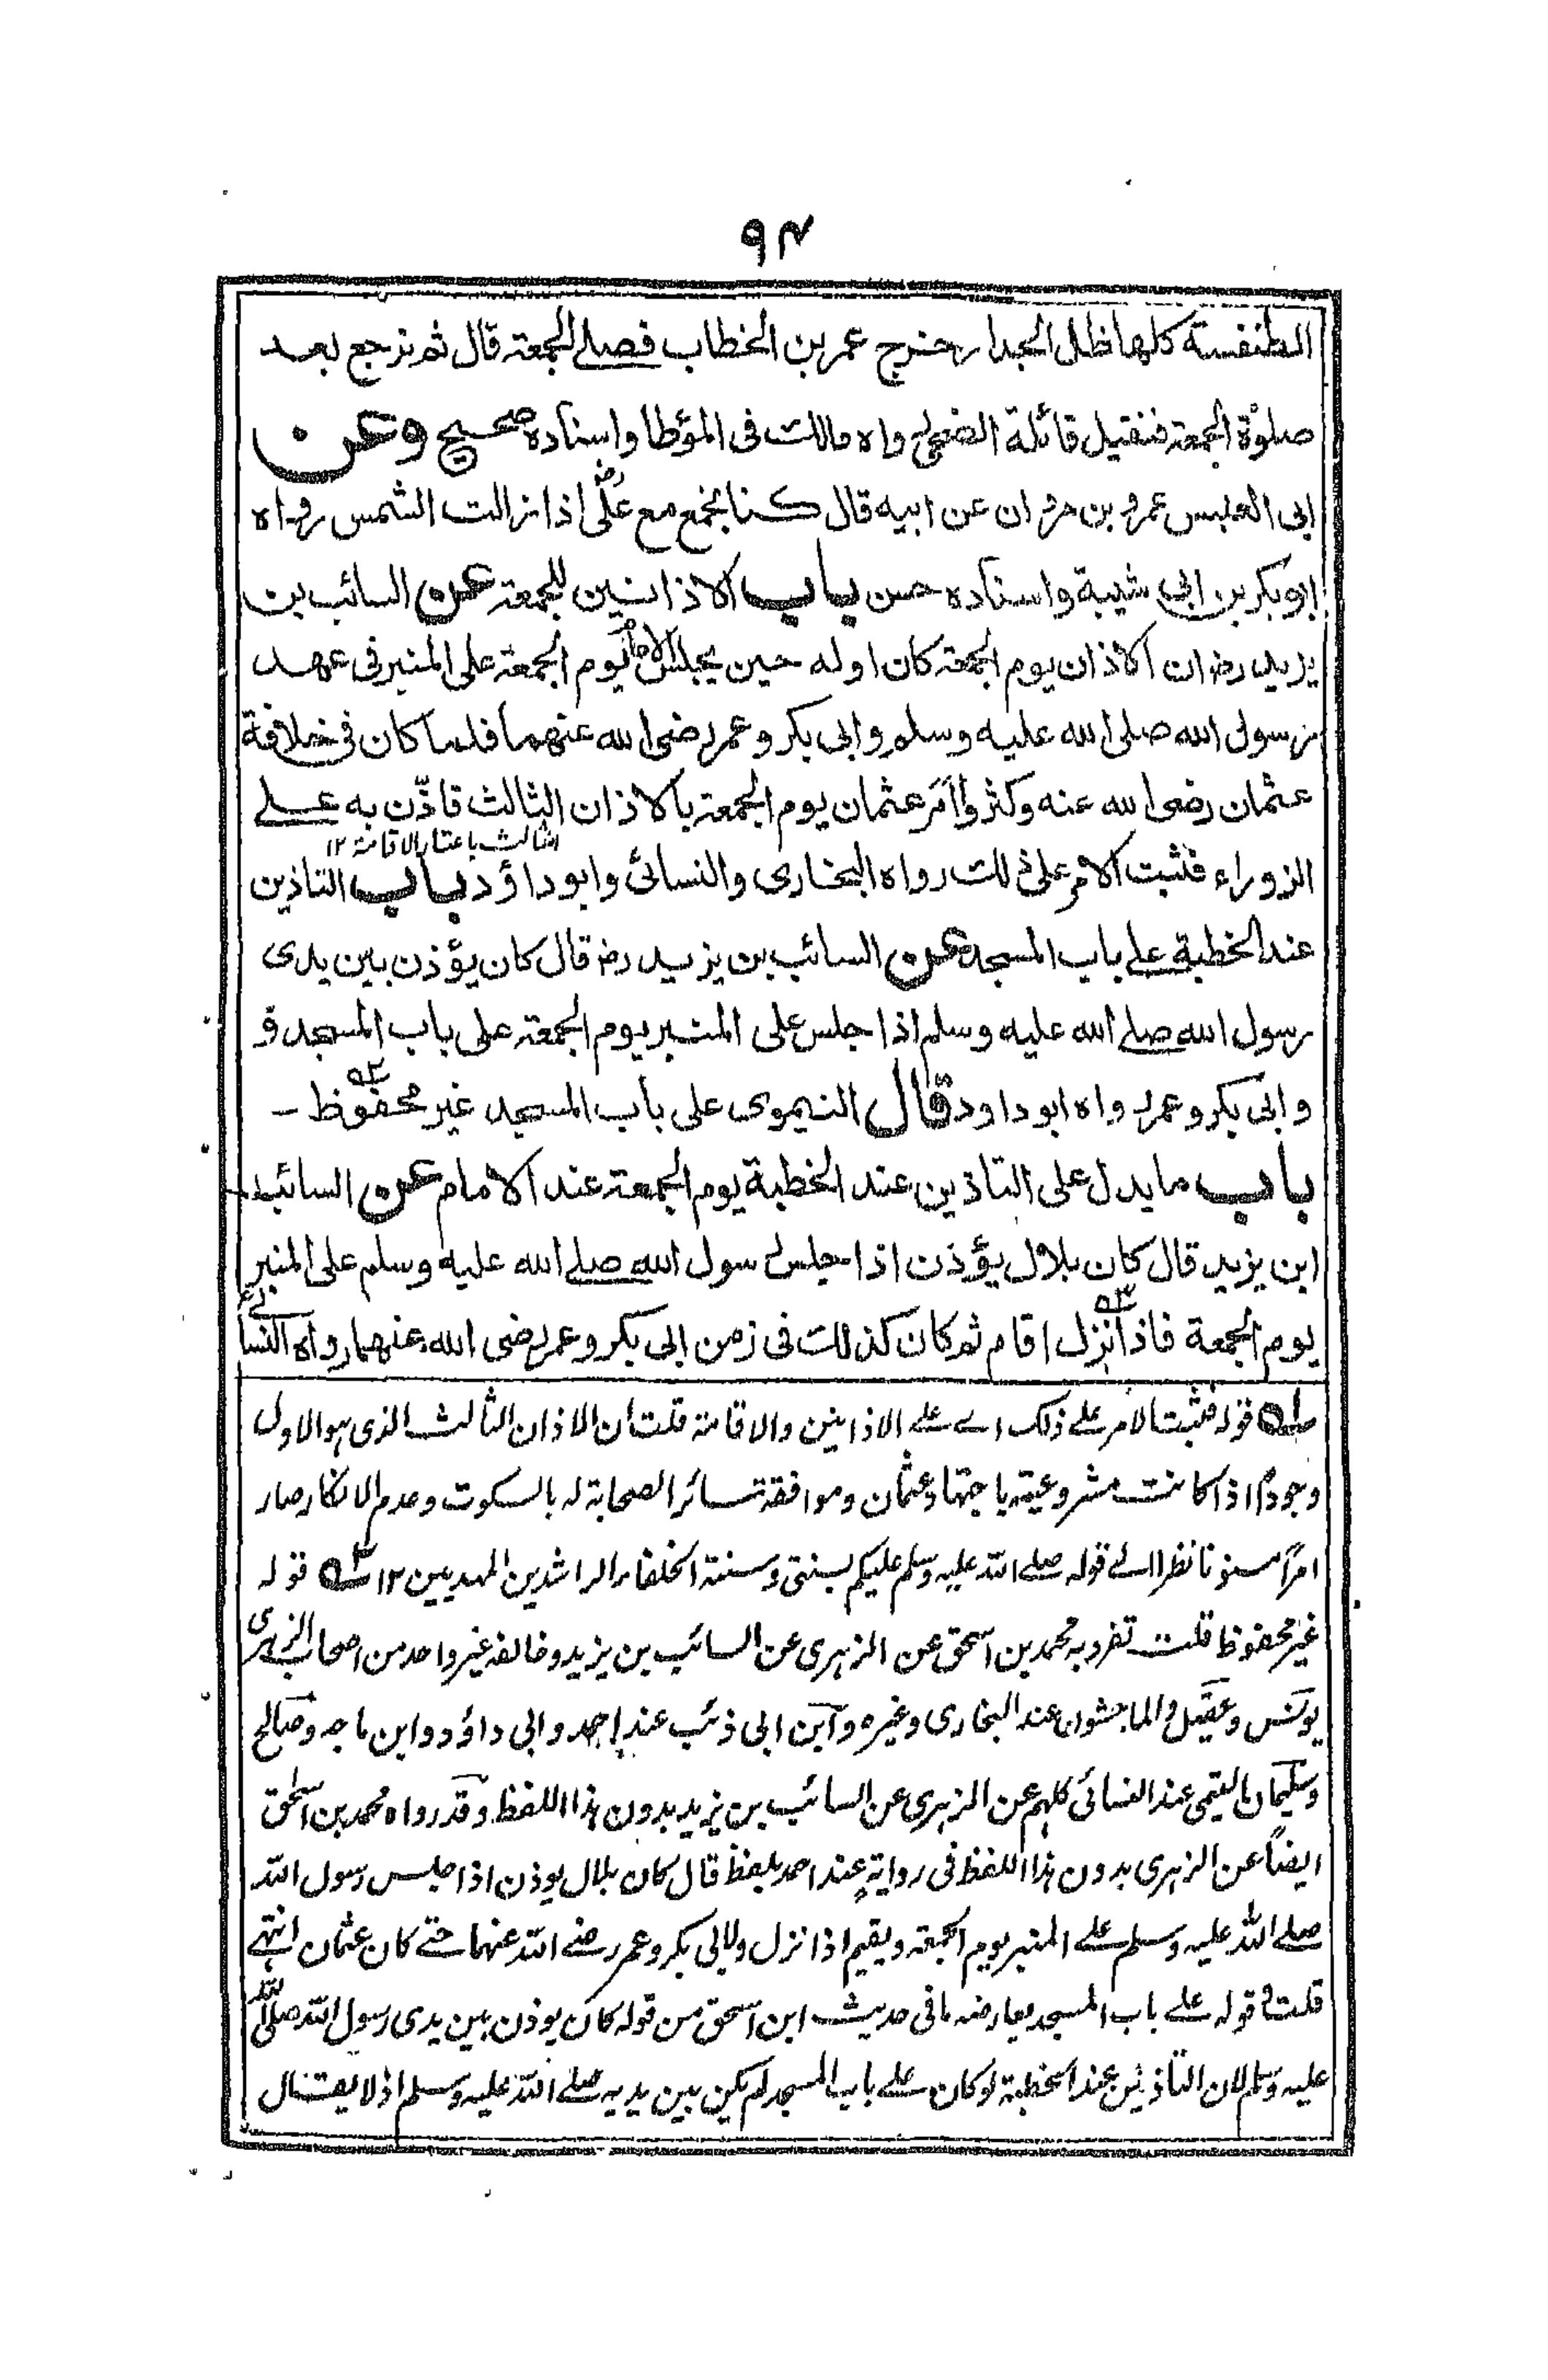 ۹۴
الطنفسة كلها ظل الجدار خرج عمر بن الخطاب فصلے الجمعة قال ثم نرجع بعد
صلوٰة الجمعة فنقيل قائلة الضحى رواه مالك فى المؤطا واسناده صحيح وعن
ابى العنبس عمرو بن مروان عن ابيه قال كنا نجمع مع علىؓ اذا زالت الشمس رواه
ابو بكر بن ابى شيبة واسناده حسن باب الاذانين للجمعة عن السائب بن
يزيد رضـ ان الاذان يوم الجمعة كان اوله حين يجلس الامام يوم الجمعة على المنبر فى عهد
رسول الله صلى الله عليه وسلم وابى بكر وعمر رضى الله عنهما فلما كان فى خلافة
عثمان رضى الله عنه وكثروا أمر عثمان يوم الجمعة بالاذان الثالث فاذّن به علے
الثالث باعتبار الاقامة ۱۲
الزوراء فثبت الامر على ذلك رواه البخارى والنسائى وابو داؤد باب التاذين
عند الخطبة علے باب المسجد عن السائب بن يزيد رضـ قال كان يؤذن بين يدى
رسول الله صلے الله عليه وسلم اذا جلس على المنبر يوم الجمعة على باب المسجد و
وابى بكر وعمر رواه ابو داود قال النيموى على باب المسجد غير محفوظ ۲ـه –
باب ما يدل على التاذين عند الخطبة يوم الجمعة عند الامام عن السائب
ابن يزيد قال كان بلال يؤذن اذا جلس رسول الله صلے الله عليه وسلم على المنبر
يوم الجمعة فاذا نزل ۳ـه اقام ثم كان كذلك فى زمن ابى بكر وعمر رضى الله عنهما رواه النسائے
۱ـه قوله فثبت الامر علے ذلك اے علے الاذانين والاقامة قلت ان الاذان الثالث الذى هو الاول
وجودًا اذا كانت مشروعيته باجتهاد عثمان وموافقة سائر الصحابة له بالسكوت وعدم الانكار صار
امرًا مسنونا نظرا الے قوله صلے الله عليه وسلم عليكم بسنتى وسنة الخلفاء الراشدين المهديين ۱۲ ۲ـه قوله
غير محفوظ قلت تفرد به محمد بن اسحق عن الزهرى عن السائب بن يزيد وخالفه غير واحد من اصحاب الزهرى
يونس وعقيل والماجشون عند البخارى وغيره وابن ابى ذئب عند احمد وابى داؤد وابن ماجه وصالح
وسليمان التيمى عند النسائى كلهم عن الزهرى عن السائب بن يزيد بدون هذا اللفظ وقد رواه محمد بن اسحٰق
ايضًا عن الزهرى بدون هذا اللفظ فى رواية عند احمد بلفظ قال كان بلال يوذن اذا جلس رسول الله
صلے الله عليه وسلم علے المنبر يوم الجمعة ويقيم اذا نزل ولابى بكر وعمر رضے الله عنهما حتے كان عثمان انتهے
قلت قوله علے باب المسجد يعارضه ما فى حديث ابن اسحق من قوله كان يوذن بين يدى رسول الله صلى الله
عليه وسلم لان التاذين عند الخطبة لو كان علے باب المسجد لم يكن بين يديه صلے الله عليه وسلم اذ لا يقال